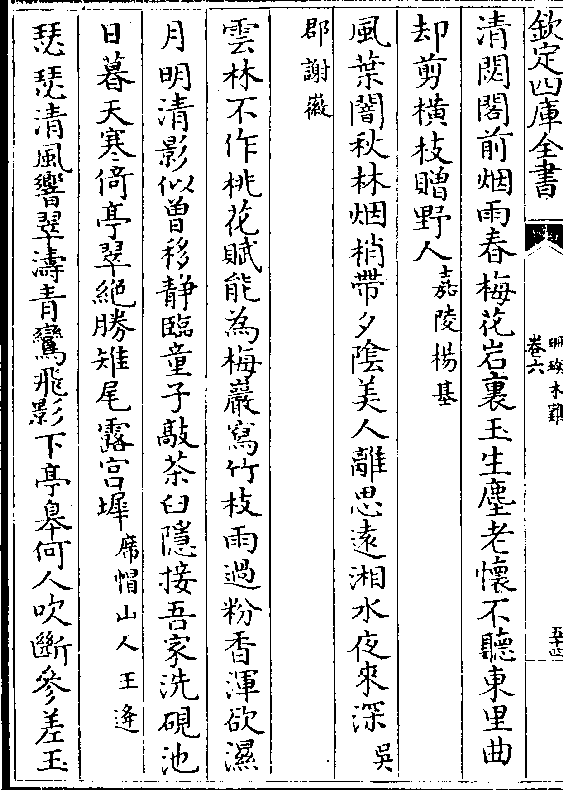 欽定四庫全書
珊瑚木難
卷六
清閟閣前烟雨春梅花岩裏玉生塵老懷不聽東里曲
却剪橫枝贈野人嘉陵楊基
風葉闇秋林烟梢帶夕陰美人離思遠湘水夜來深吳
郡謝徽
雲林不作桃花賦能為梅巖寫竹枝雨過粉香渾欲濕
月明清影似曾移靜臨童子敲茶臼隱接吾家洗硯池
日暮天寒倚亭翠絕勝雉尾露宫墀席帽山人王逄
瑟瑟清風響翠濤青鸞飛影下亭臯何人吹斷參差玉